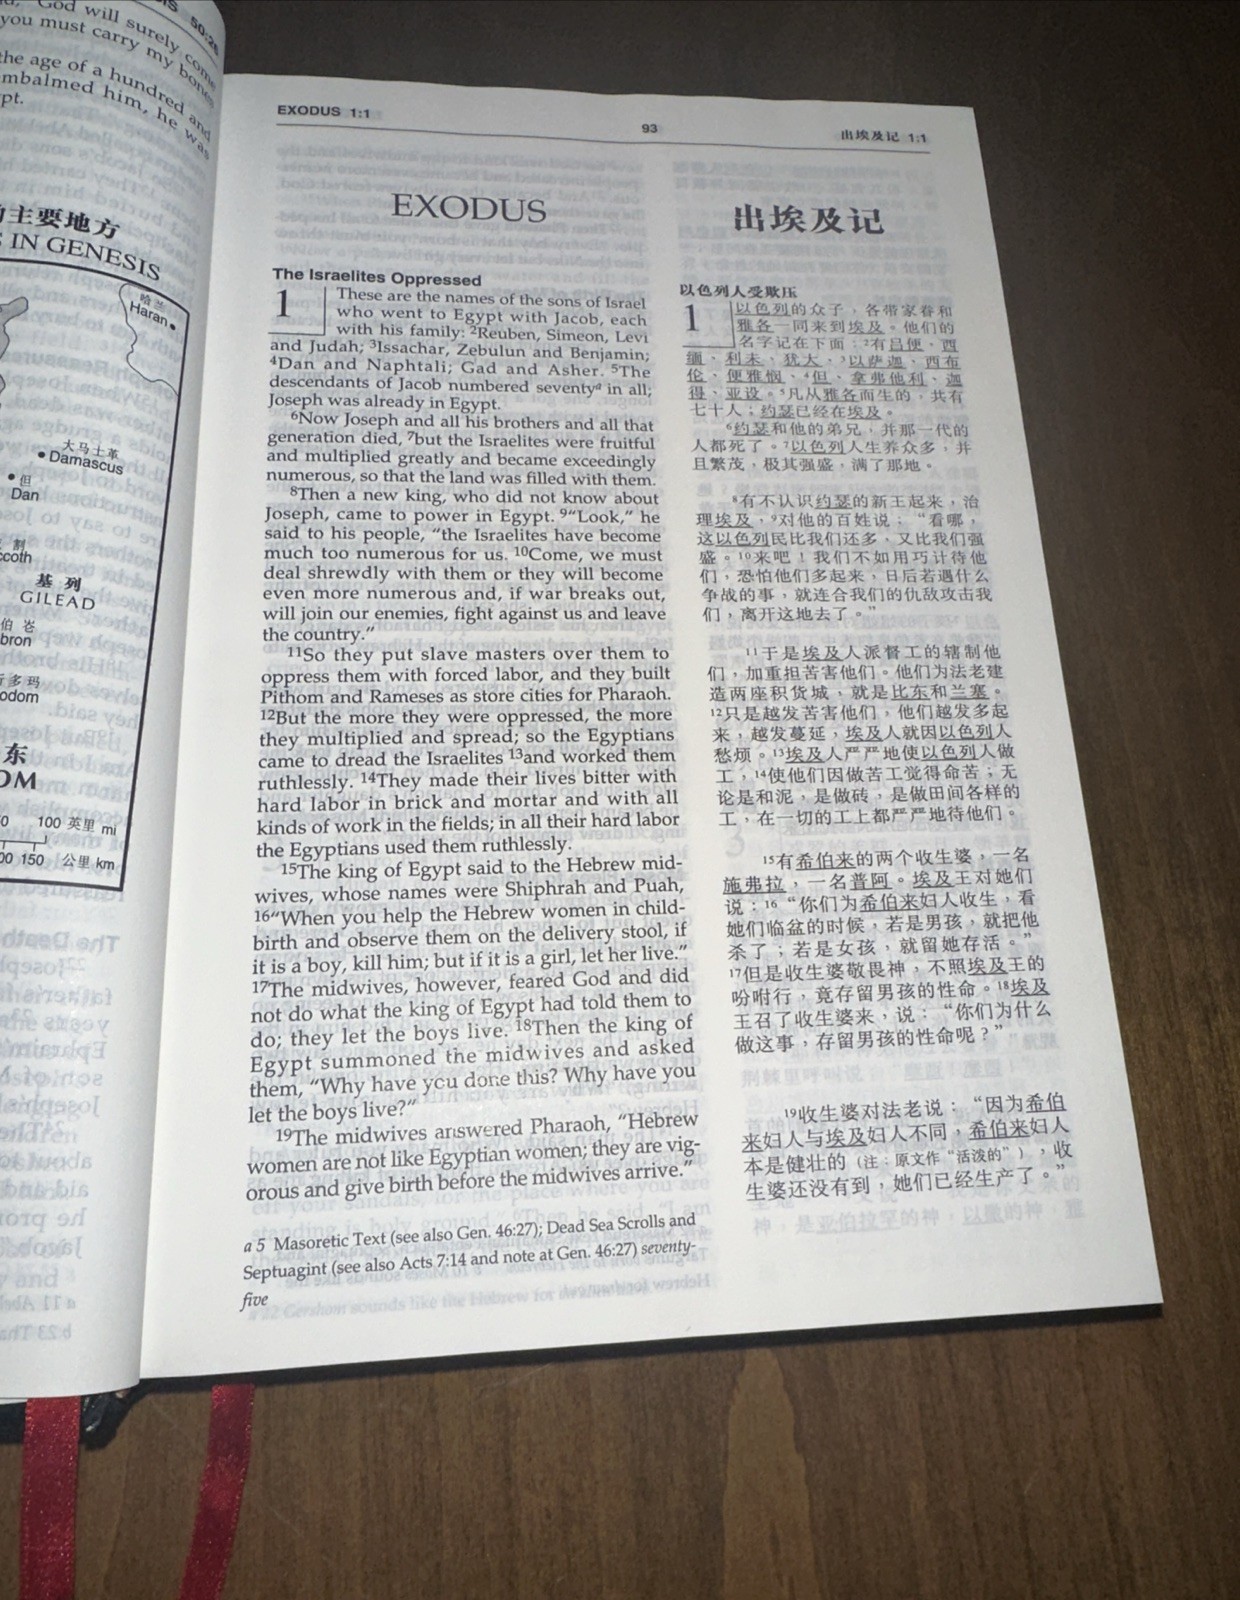 God will surely come
you must carry my bones
the age of a hundred and
embalmed him, he was
主要地方
IN GENESIS
哈兰
Haran
大马士革
Damascus
但
Dan
割
基列
GILEAD
伯崙
多玛
东
100 英里 mi
150 公里 km
EXODUS 1:1
93
出埃及记 1:1
EXODUS
The Israelites Oppressed
1 These are the names of the sons of Israel
who went to Egypt with Jacob, each
with his family: 2Reuben, Simeon, Levi
and Judah; 3Issachar, Zebulun and Benjamin;
4Dan and Naphtali; Gad and Asher. 5The
descendants of Jacob numbered seventya in all;
Joseph was already in Egypt.
6Now Joseph and all his brothers and all that
generation died, 7but the Israelites were fruitful
and multiplied greatly and became exceedingly
numerous, so that the land was filled with them.
8Then a new king, who did not know about
Joseph, came to power in Egypt. 9“Look,” he
said to his people, “the Israelites have become
much too numerous for us. 10Come, we must
deal shrewdly with them or they will become
even more numerous and, if war breaks out,
will join our enemies, fight against us and leave
the country.”
11So they put slave masters over them to
oppress them with forced labor, and they built
Pithom and Rameses as store cities for Pharaoh.
12But the more they were oppressed, the more
they multiplied and spread; so the Egyptians
came to dread the Israelites 13and worked them
ruthlessly. 14They made their lives bitter with
hard labor in brick and mortar and with all
kinds of work in the fields; in all their hard labor
the Egyptians used them ruthlessly.
15The king of Egypt said to the Hebrew mid-
wives, whose names were Shiphrah and Puah,
16“When you help the Hebrew women in child-
birth and observe them on the delivery stool, if
it is a boy, kill him; but if it is a girl, let her live.”
17The midwives, however, feared God and did
not do what the king of Egypt had told them to
do; they let the boys live. 18Then the king of
Egypt summoned the midwives and asked
them, “Why have you done this? Why have you
let the boys live?”
19The midwives answered Pharaoh, “Hebrew
women are not like Egyptian women; they are vig-
orous and give birth before the midwives arrive.”
a 5 Masoretic Text (see also Gen. 46:27); Dead Sea Scrolls and
Septuagint (see also Acts 7:14 and note at Gen. 46:27) seventy-
five
出埃及记
以色列人受欺压
1 以色列的众子，各带家眷和
雅各一同来到埃及。他们的
名字记在下面：2有吕便、西
缅、利未、犹大、3以萨迦、西布
伦、便雅悯、4但、拿弗他利、迦
得、亚设。5凡从雅各而生的，共有
七十人；约瑟已经在埃及。
6约瑟和他的弟兄，并那一代的
人都死了。7以色列人生养众多，并
且繁茂，极其强盛，满了那地。
8有不认识约瑟的新王起来，治
理埃及，9对他的百姓说：“看哪，
这以色列民比我们还多，又比我们强
盛。10来吧！我们不如用巧计待他
们，恐怕他们多起来，日后若遇什么
争战的事，就连合我们的仇敌攻击我
们，离开这地去了。”
11于是埃及人派督工的辖制他
们，加重担苦害他们。他们为法老建
造两座积货城，就是比东和兰塞。
12只是越发苦害他们，他们越发多起
来，越发蔓延，埃及人就因以色列人
愁烦。13埃及人严严地使以色列人做
工，14使他们因做苦工觉得命苦；无
论是和泥，是做砖，是做田间各样的
工，在一切的工上都严严地待他们。
15有希伯来的两个收生婆，一名
施弗拉，一名普阿。埃及王对她们
说：16“你们为希伯来妇人收生，看
她们临盆的时候，若是男孩，就把他
杀了；若是女孩，就留她存活。”
17但是收生婆敬畏神，不照埃及王的
吩咐行，竟存留男孩的性命。18埃及
王召了收生婆来，说：“你们为什么
做这事，存留男孩的性命呢？”
19收生婆对法老说：“因为希伯
来妇人与埃及妇人不同，希伯来妇人
本是健壮的（注：原文作“活泼的”），收
生婆还没有到，她们已经生产了。”